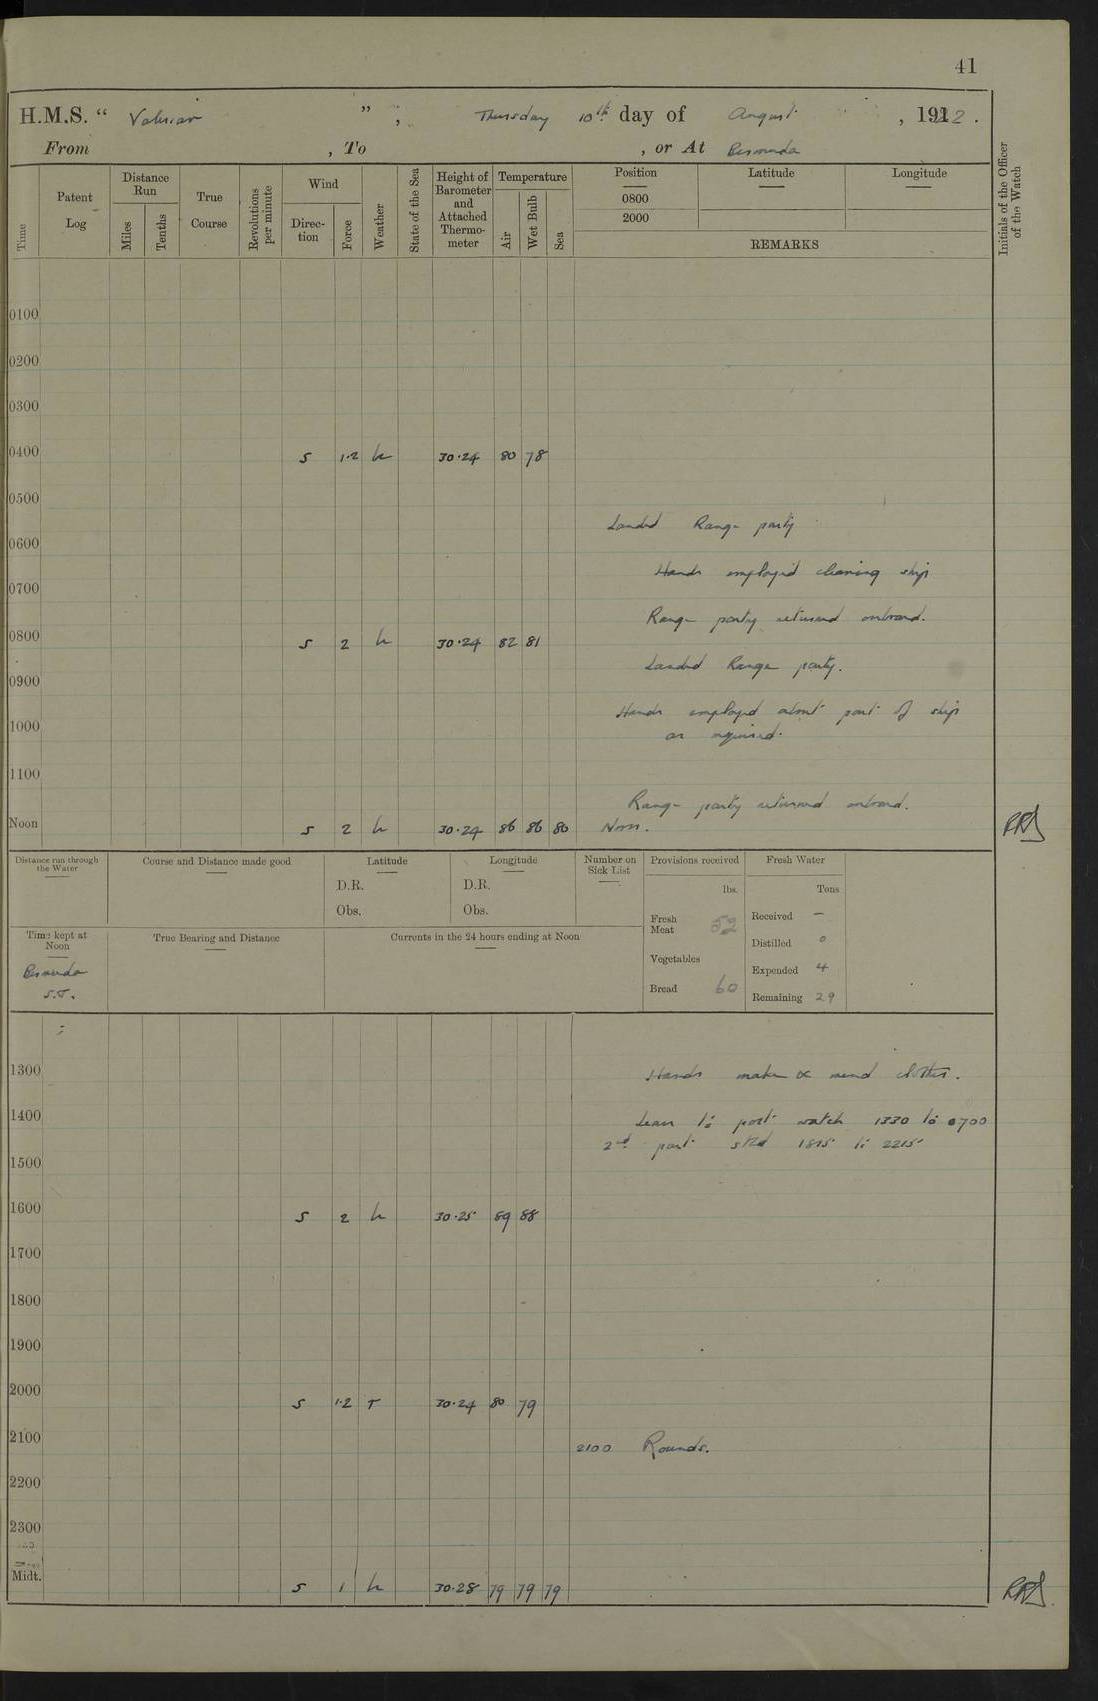 41
H.M.S. “ Valerian ” , Thursday 10th day of August , 1922 .
From , To , or At Bermuda
Time
Patent Log
Distance Run
Miles
Tenths
True Course
Revolutions per minute
Wind
Direc-tion
Force
Weather
State of the Sea
Height of Barometer and Attached Thermo-meter
Temperature
Air
Wet Bulb
Sea
Position
0800
2000
Latitude
Longitude
REMARKS
Initials of the Officer of the Watch
0100
0200
0300
0400 S 1.2 b 30.24 80 78
0500
Landed Range party
0600
Hands employed cleaning ship
0700
Range party returned onboard.
0800 S 2 b 30.24 82 81
Landed Range party.
0900
Hands employed about part of ship
1000
as required.
1100
Range party returned onboard.
Noon S 2 b 30.24 86 86 80 Noon.
Distance run through the Water
Course and Distance made good
Latitude
D.R.
Obs.
Longitude
D.R.
Obs.
Number on Sick List
Provisions received
lbs.
Fresh Meat 52
Vegetables
Bread 60
Fresh Water
Tons
Received —
Distilled 0
Expended 4
Remaining 29
Time kept at Noon
Bermuda
S.T.
True Bearing and Distance
Currents in the 24 hours ending at Noon
1300
Hands make & mend clothes.
1400
Leave to port watch 1330 to 0700
2nd part stbd 1815 to 2215
1500
1600 S 2 b 30.25 89 88
1700
1800
1900
2000 S 1.2 r 30.24 80 79
2100
2100 Rounds.
2200
2300
Midt. S 1 b 30.28 79 79 79